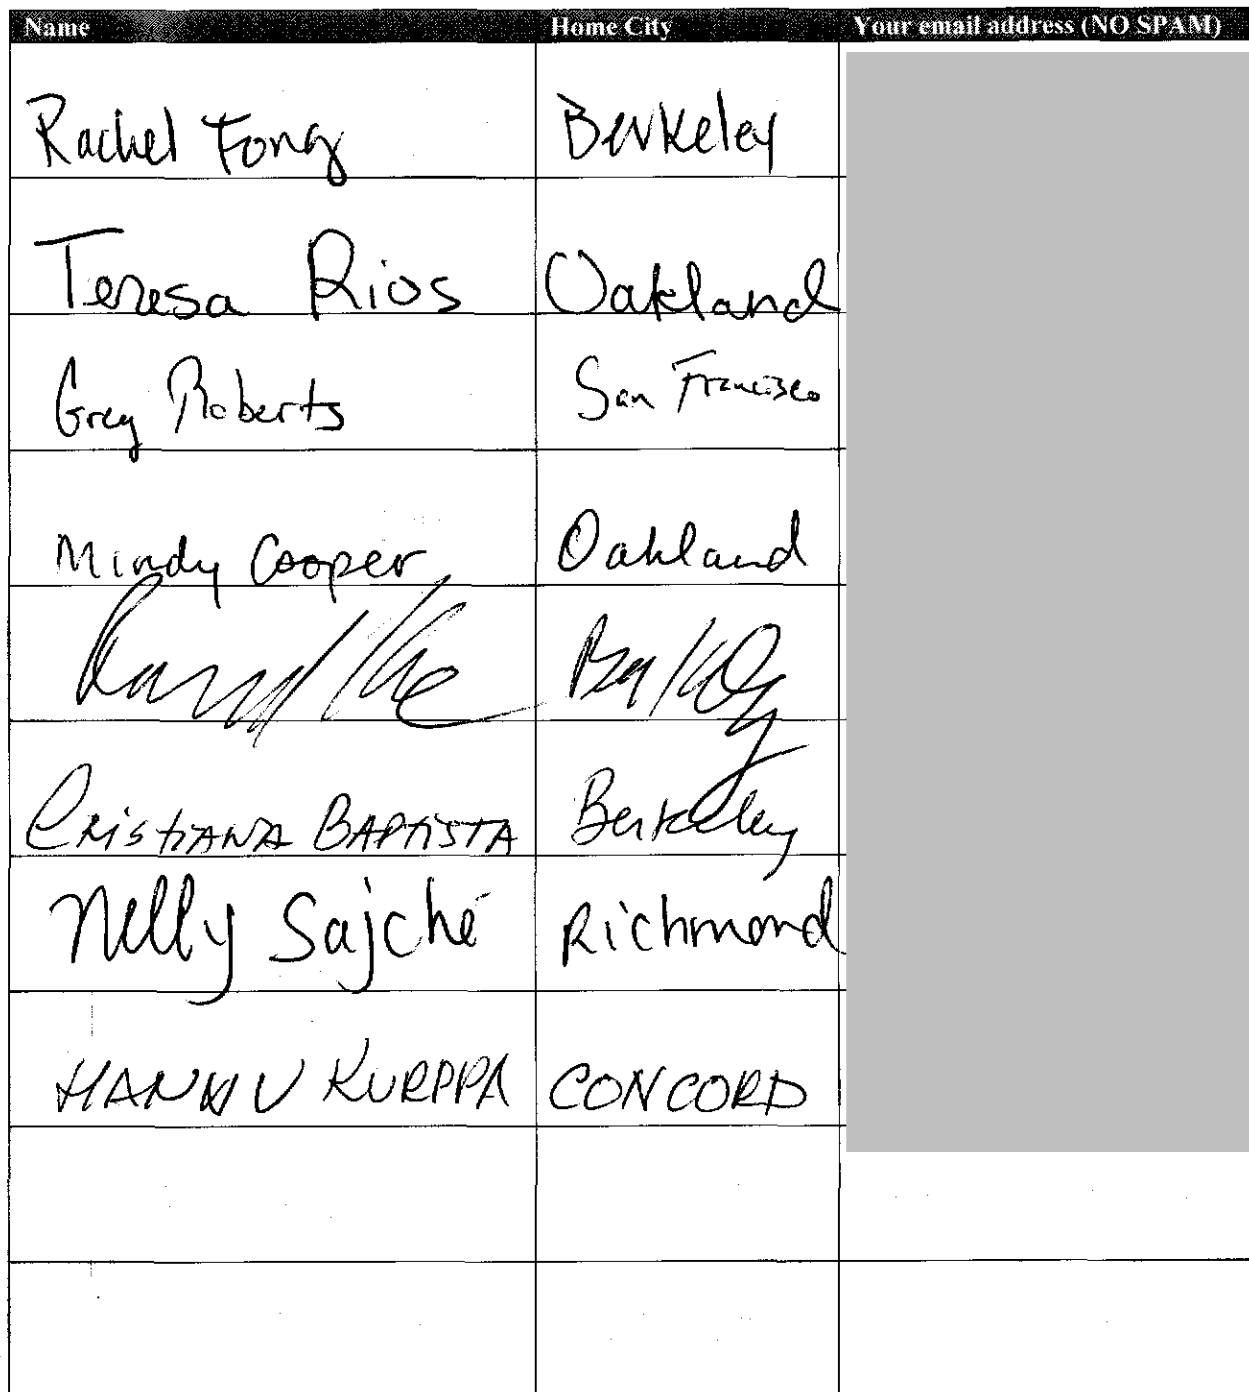 Name Home City Your email address (NO SPAM)
Rachel Fong Berkeley
Teresa Rios Oakland
Greg Roberts San Francisco
Mindy Cooper Oakland
Berkeley
CRISTIANA BAPTISTA Berkeley
Nelly Sajché Richmond
HANNU KURPPA CONCORD